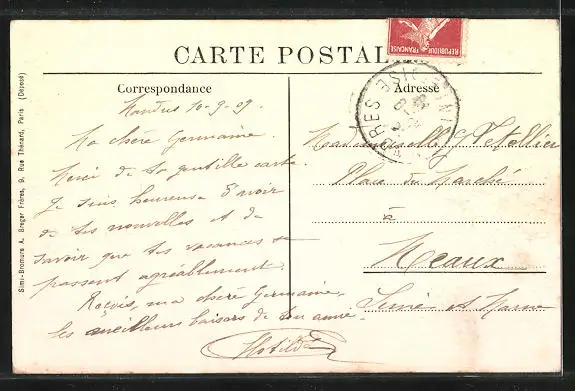 REPUBLIQUE FRANÇAISE
CARTE POSTALE
Correspondance
10-9-09.
Ma chère Germaine.
Merci de ta gentille carte.
Je suis heureuse d'avoir
de tes nouvelles et de
savoir que tes vacances se
passent agréablement.
Reçois, ma chère Germaine,
les meilleurs baisers de ton amie.
Clotilde
Adresse
Mademoiselle G. Tetellier
Place du Marché
à
Meaux
Seine et Marne
Simi-Bromure A. Breger Frères, 9, Rue Thénard, Paris (Déposé)